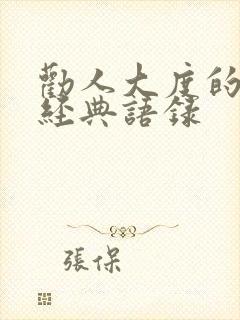 勸人大度的
經典語錄
張保